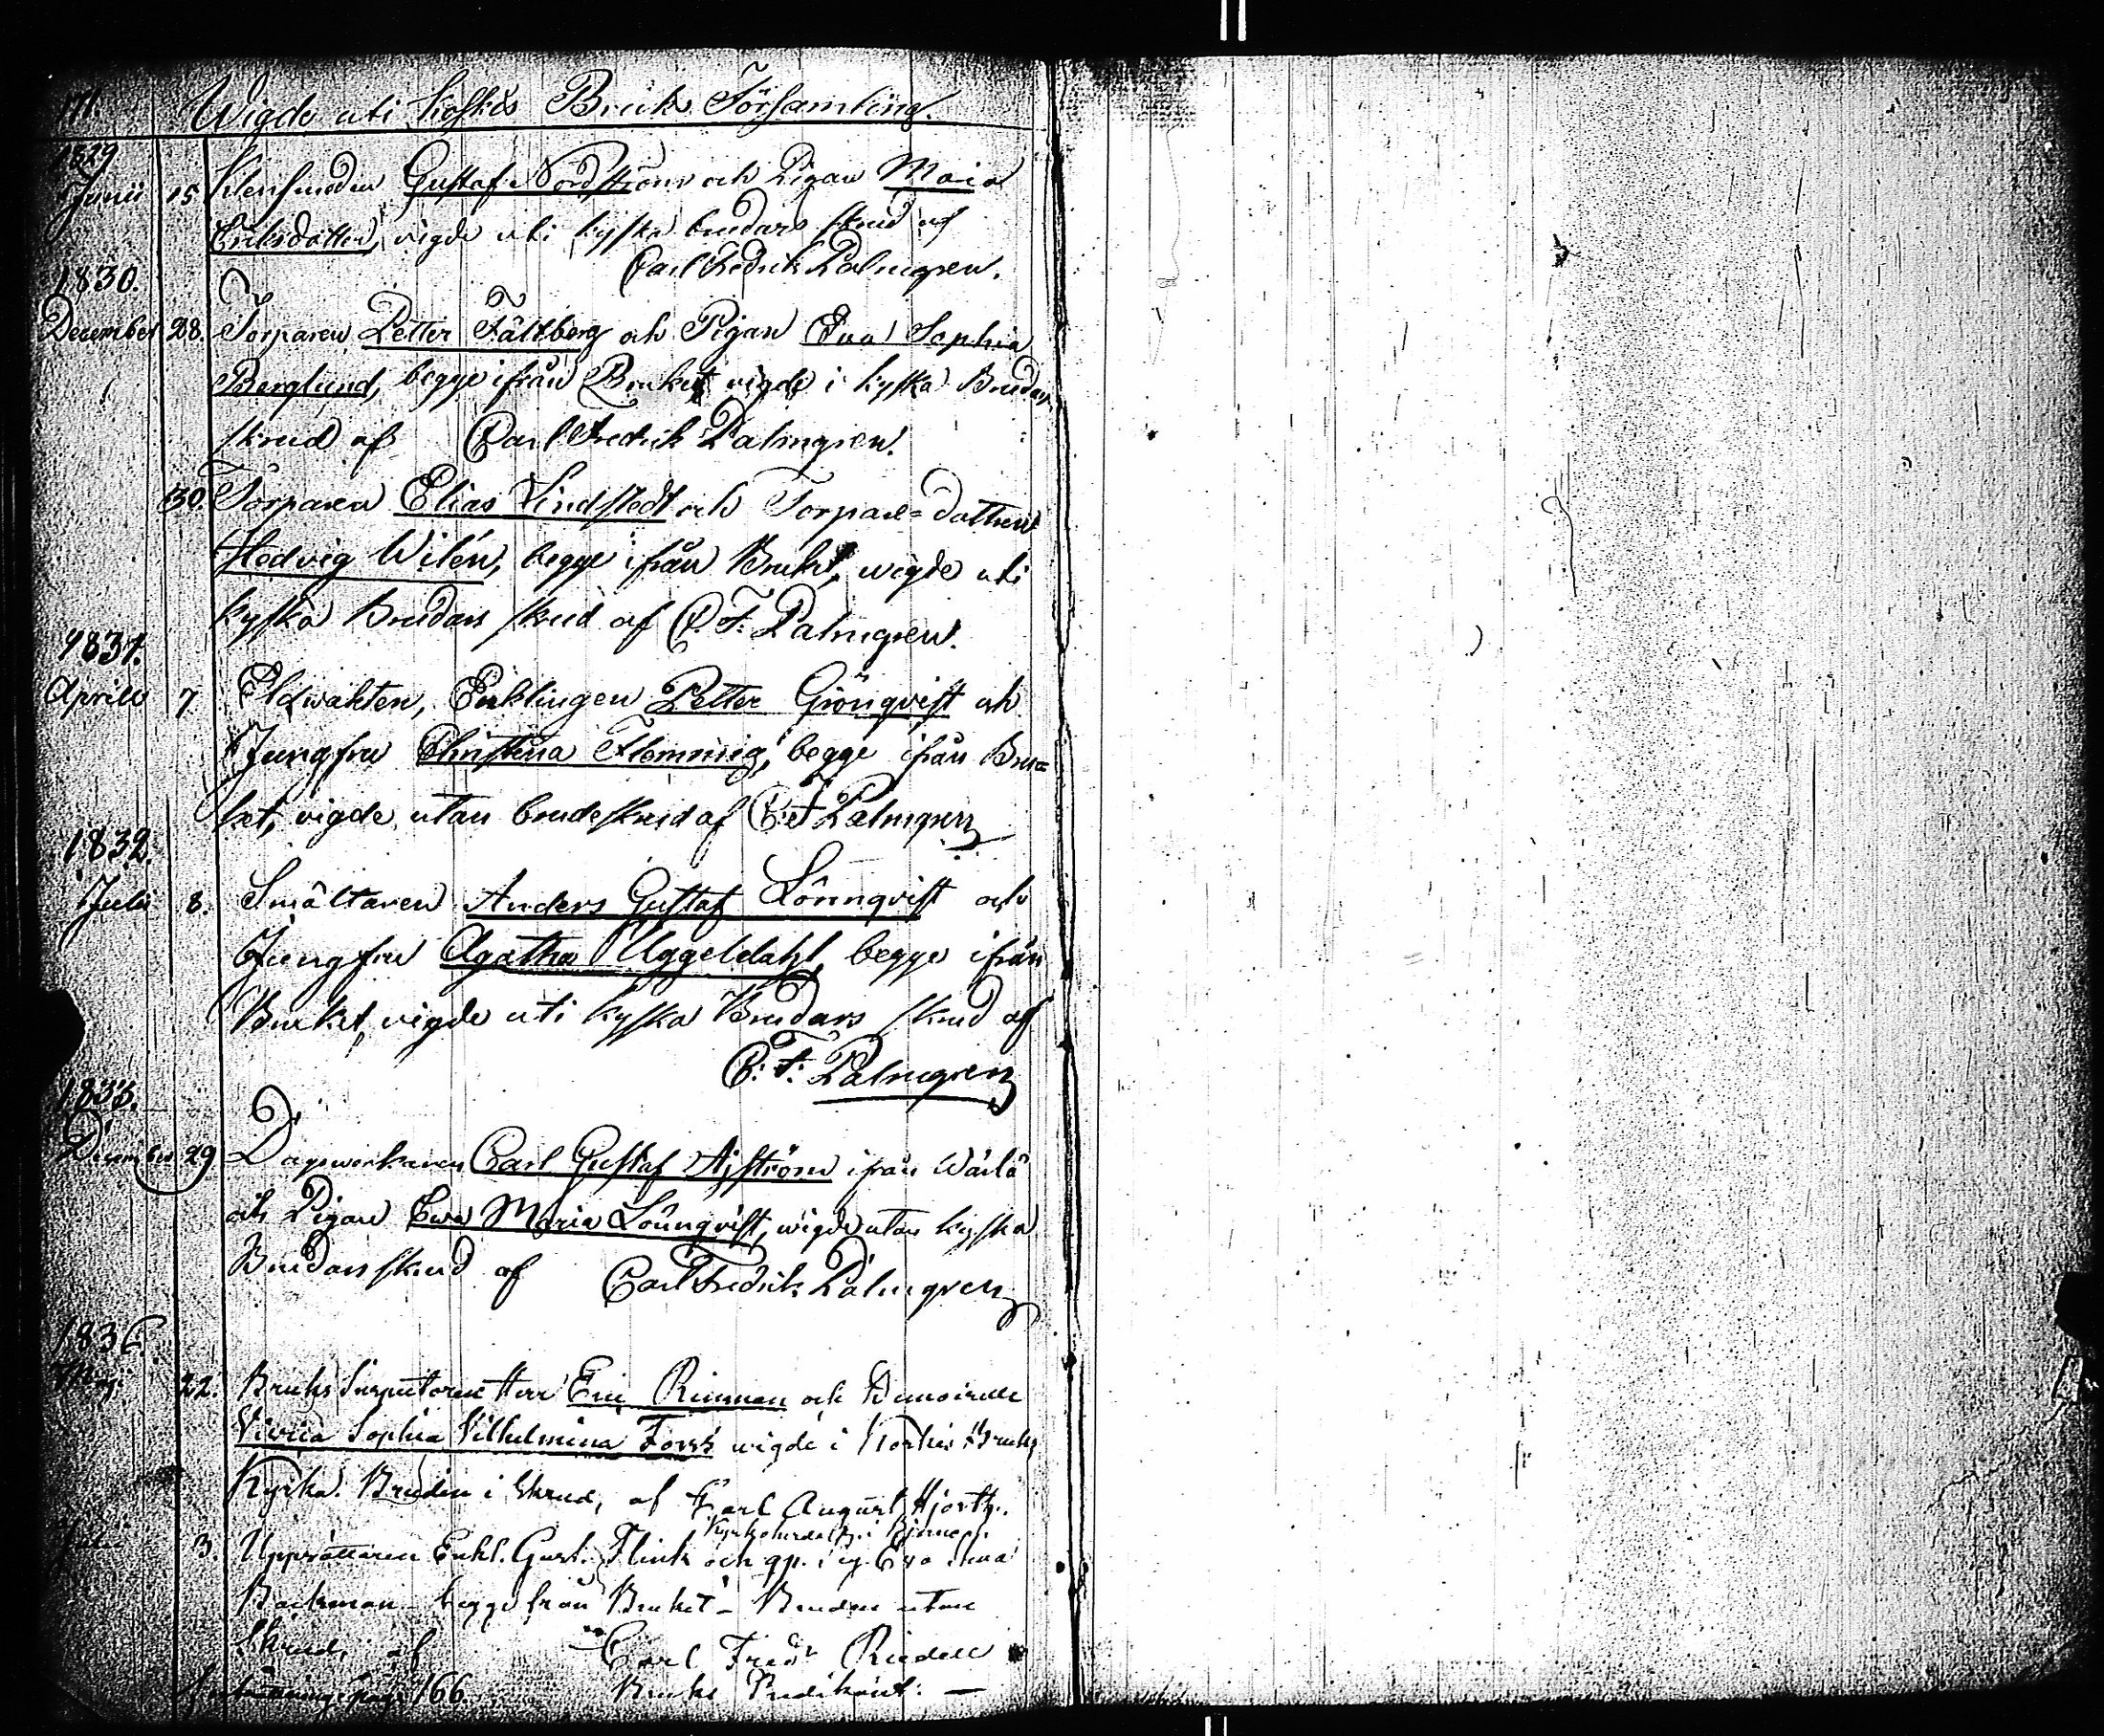 171. Wigde uti Koskis Bruks Församling.
1829
Junii 15 Klensmeden Gustaf Nordström och Pigan Maia
Eriksdotter, vigde uti kyska brudars skrud af
Carl Fredrik Palmgren.
1830.
December 28. Torparen Petter Fältberg och Pigan Eva Sophia
Berglund, begge ifrån Bruket vigde i kyska Brudars
skrud af Carl Fredrik Palmgren.
30. Torparen Elias Lindstedt och Torpare-dottren
Hedvig Wilén, begge ifrån Bruket, wigde uti
kyska Brudars skrud af C. F. Palmgren.
1831.
Aprill 7 Eldwakten, Enklingen Petter Grönqvist och
Jungfru Christina Flemmig, begge ifrån Bru=
ket, vigde utan brudeskrud af C. F Palmgren
1832.
Julii 8. Smältaren Anders Gustaf Lönnqvist och
Jungfru Agatha Uggeldahl, begge ifrån
Bruket, vigde uti kyska Brudars skrud af
C: F: Palmgren
1833.
December 29 Dagsverkaren Carl Gustaf Sjström ifrån
och Pigan Ewa Maria Lönnqvist, wigde utan kyska
Brudars skrud af Carl Fredrik Palmgren
1836.
Maji 22. Bruks Inspectoren Herr Eric Rinman och Demoiselle
Sophia Vilhelmina Forss wigde i Koskis Bruks
Kyrka. Bruden i Skrud, af Carl August Hjorth.
3. Enkl. Gust. Flink och Eva
Backman - begge från Bruket - Bruden utan
Skrud, af Carl Fredr Riedell
166. Bruks Predikant. —